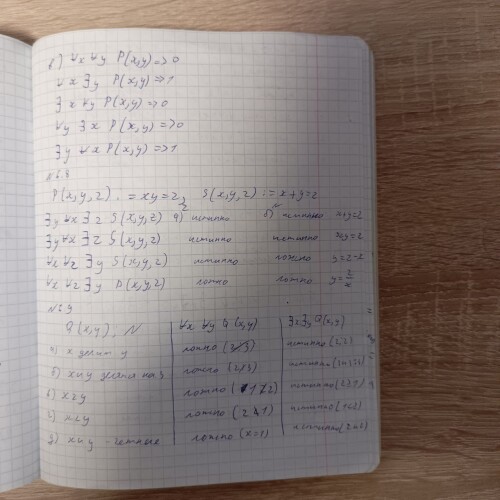 в) ∀x ∀y P(x,y) => 0
∀x ∃y P(x,y) => 1
∃x ∀y P(x,y) => 0
∀y ∃x P(x,y) => 0
∃y ∀x P(x,y) => 1
P(x,y,z) := xy=z, S(x,y,z) := x+y=z
∃y ∀x ∃z S(x,y,z) а) истинно б) истинно x+y=z
∃y ∀x ∃z S(x,y,z) истинно истинно
∀x ∀z ∃y S(x,y,z) истинно ложно y=z-x
∀x ∀z ∃y P(x,y,z) ложно ложно y=z/x
№ 6.9
Q(x,y), N ∀x ∀y Q(x,y) ∃x ∃y Q(x,y)
а) x делит y ложно истинно
б) x и y делятся на 3 ложно истинно
в) x≥y ложно истинно
г) x<y ложно истинно (1<2)
д) x и y - четные ложно (x=1) истинно